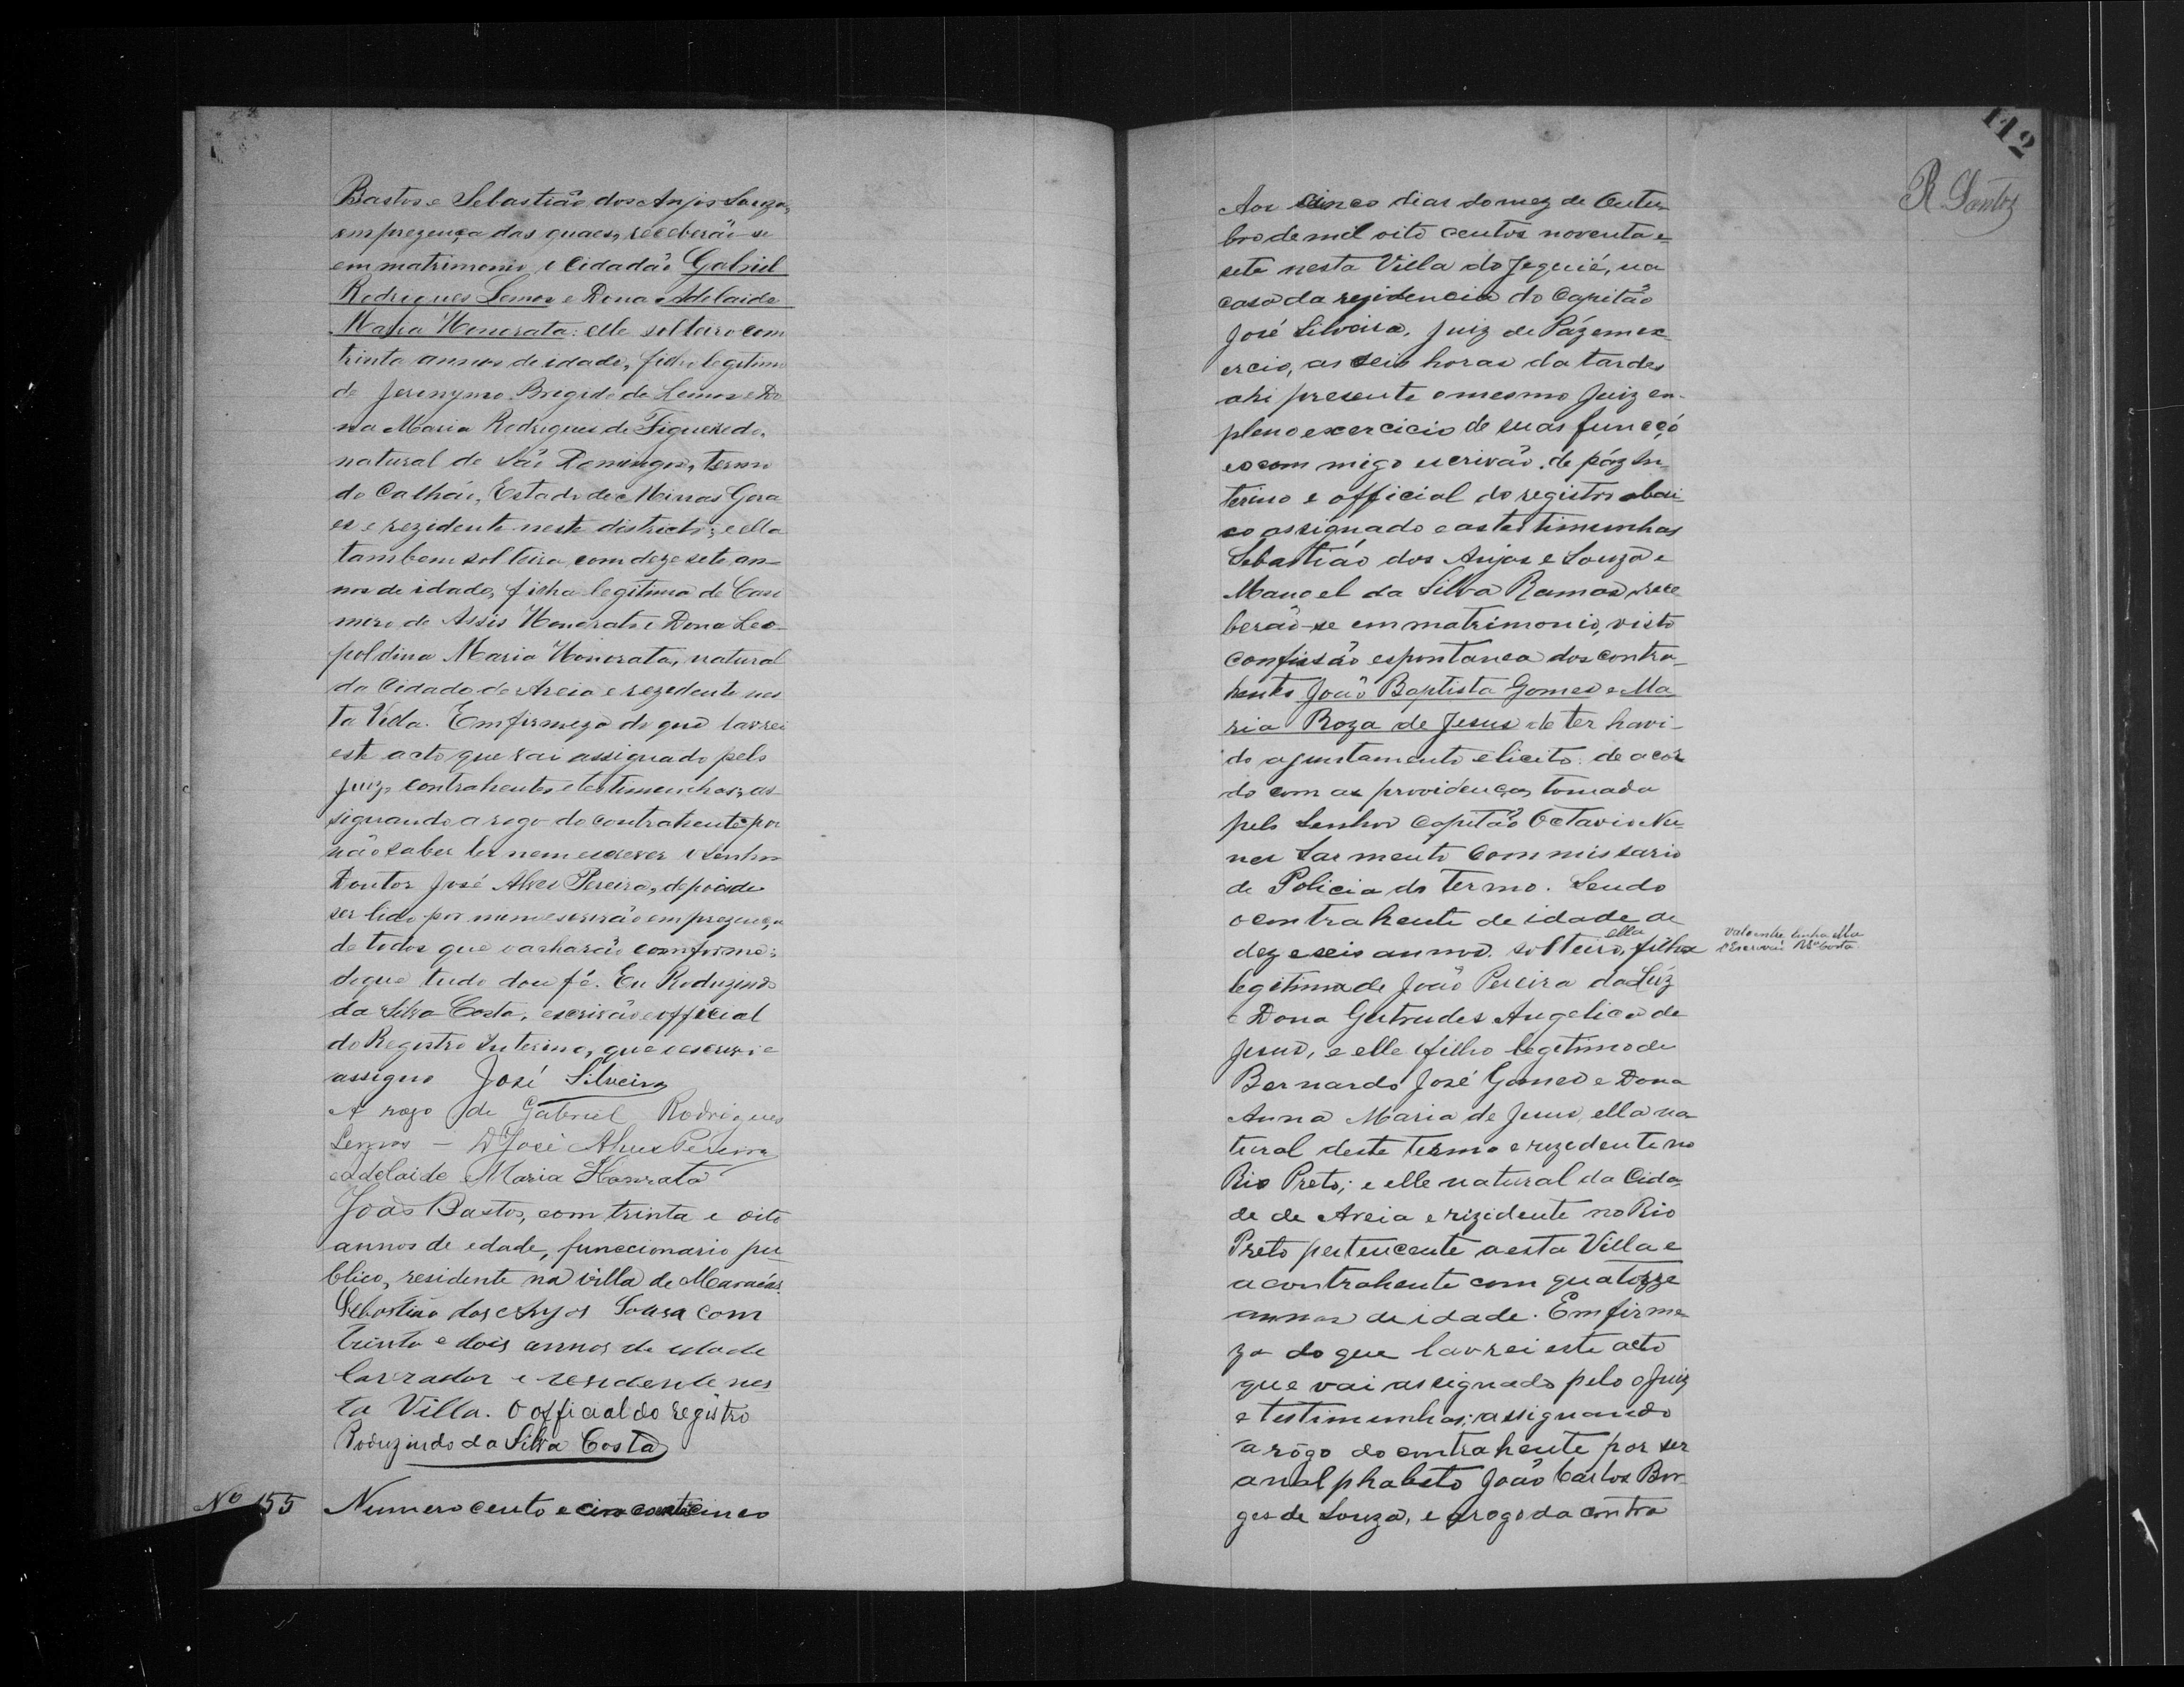 Bastos e Sebastião dos Anjos Souza,
em prezença das quaes, receberão-se
em matrimonio o Cidadão Gabriel
Rodrigues Lemos e Dona Adelaide
Maria Honorata: elle solteiro com
trinta annos de idade, filho legitimo
de Jeronymo Brigido de Lemos e Do
na Maria Rodrigues de Figueredo,
natural de São Domingos, termo
do Calháo, Estado de Minas Gera
es e rezidente neste districto; e ella
tambem solteira com dezesete an-
nos de idade, filha legitima de Casi
mero de Assis Honorato e Dona Leo-
poldina Maria Honorata, natural
da Cidade de Areia e rezedente nes
ta Villa. Em firmeza do que lavrei
este acto que vai assignado pelo
Juiz, contrahentes e testimunhas; as-
signando a rogo do contrahente por
não saber ler nem escrever o Senhor
Doutor José Alves Pereira, depois de
ser lido por mim escrivão em prezença
de todos que o acharão comforme:
do que tudo dou fé. Eu Roduzindo
da Silva Costa, escrivão e official
do Registro Interino, que o escrevi e
assigno José Silveira
A rogo de Gabriel Rodrigues
Lemos - Dr José Alves Pereira
Adelaide Maria Honorata
João Bastos, com trinta e oito
annos de edade, funccionario pu
blico, residente na villa de Maracás.
Sebastião dos Anjos Sousa com
trinta e dois annos de edade
lavrador e residente nes
ta Villa. O official do registro
Roduzindo da Silva Costa
No 155 Numero cento e cincoenta e cinco
112
R Santos
Aos cinco dias do mez de Outu-
bro de mil oito centos noventa e
sete nesta Villa do Jequié, na
casa da rezidencia do Capitão
José Silveira, Juiz de Páz em ex
ercio, as seis horas da tarde,
ahi presente o mesmo Juiz em
pleno exercicio de suas funcçõ
es commigo escrivão de páz In
terino e official do registro abai
xo assignado e as testimunhas
Sebastião dos Anjos e Souza e
Manoel da Silva Ramos, rece
berão-se em matrimonio, visto
confissão espontanea dos contra-
hentes João Baptista Gomes e Ma
ria Roza de Jesus de ter havi-
do ajuntamento elicito de acor
do com as providenças tomada
pelo Senhor Capitão Octavio Nu-
nes Sarmento Commissario
de Policia do Termo. Sendo
o contrahente de idade de
dezeseis annos, solteiro, ella filha
Vale entre linha ella
O Escrivão Sa Costa
legitima de João Pereira da Lúz
e Dona Gertrudes Angelica de
Jesus, e elle filho legitimo de
Bernardo José Gomes e Dona
Anna Maria de Jesus, ella na
tural deste termo e rezedente no
Rio Preto; e elle natural da Cida-
de de Areia e rizidente no Rio
Preto pertencente a esta Villa e
a contrahente com quatorze
annos de idade. Em firme
za do que lavrei este acto
que vai assignado pelo o Juiz
e testimunhas; assignando
a rôgo do contrahente por ser
analphabeto João Carlos Bor
ges de Souza, e a rogo da contra